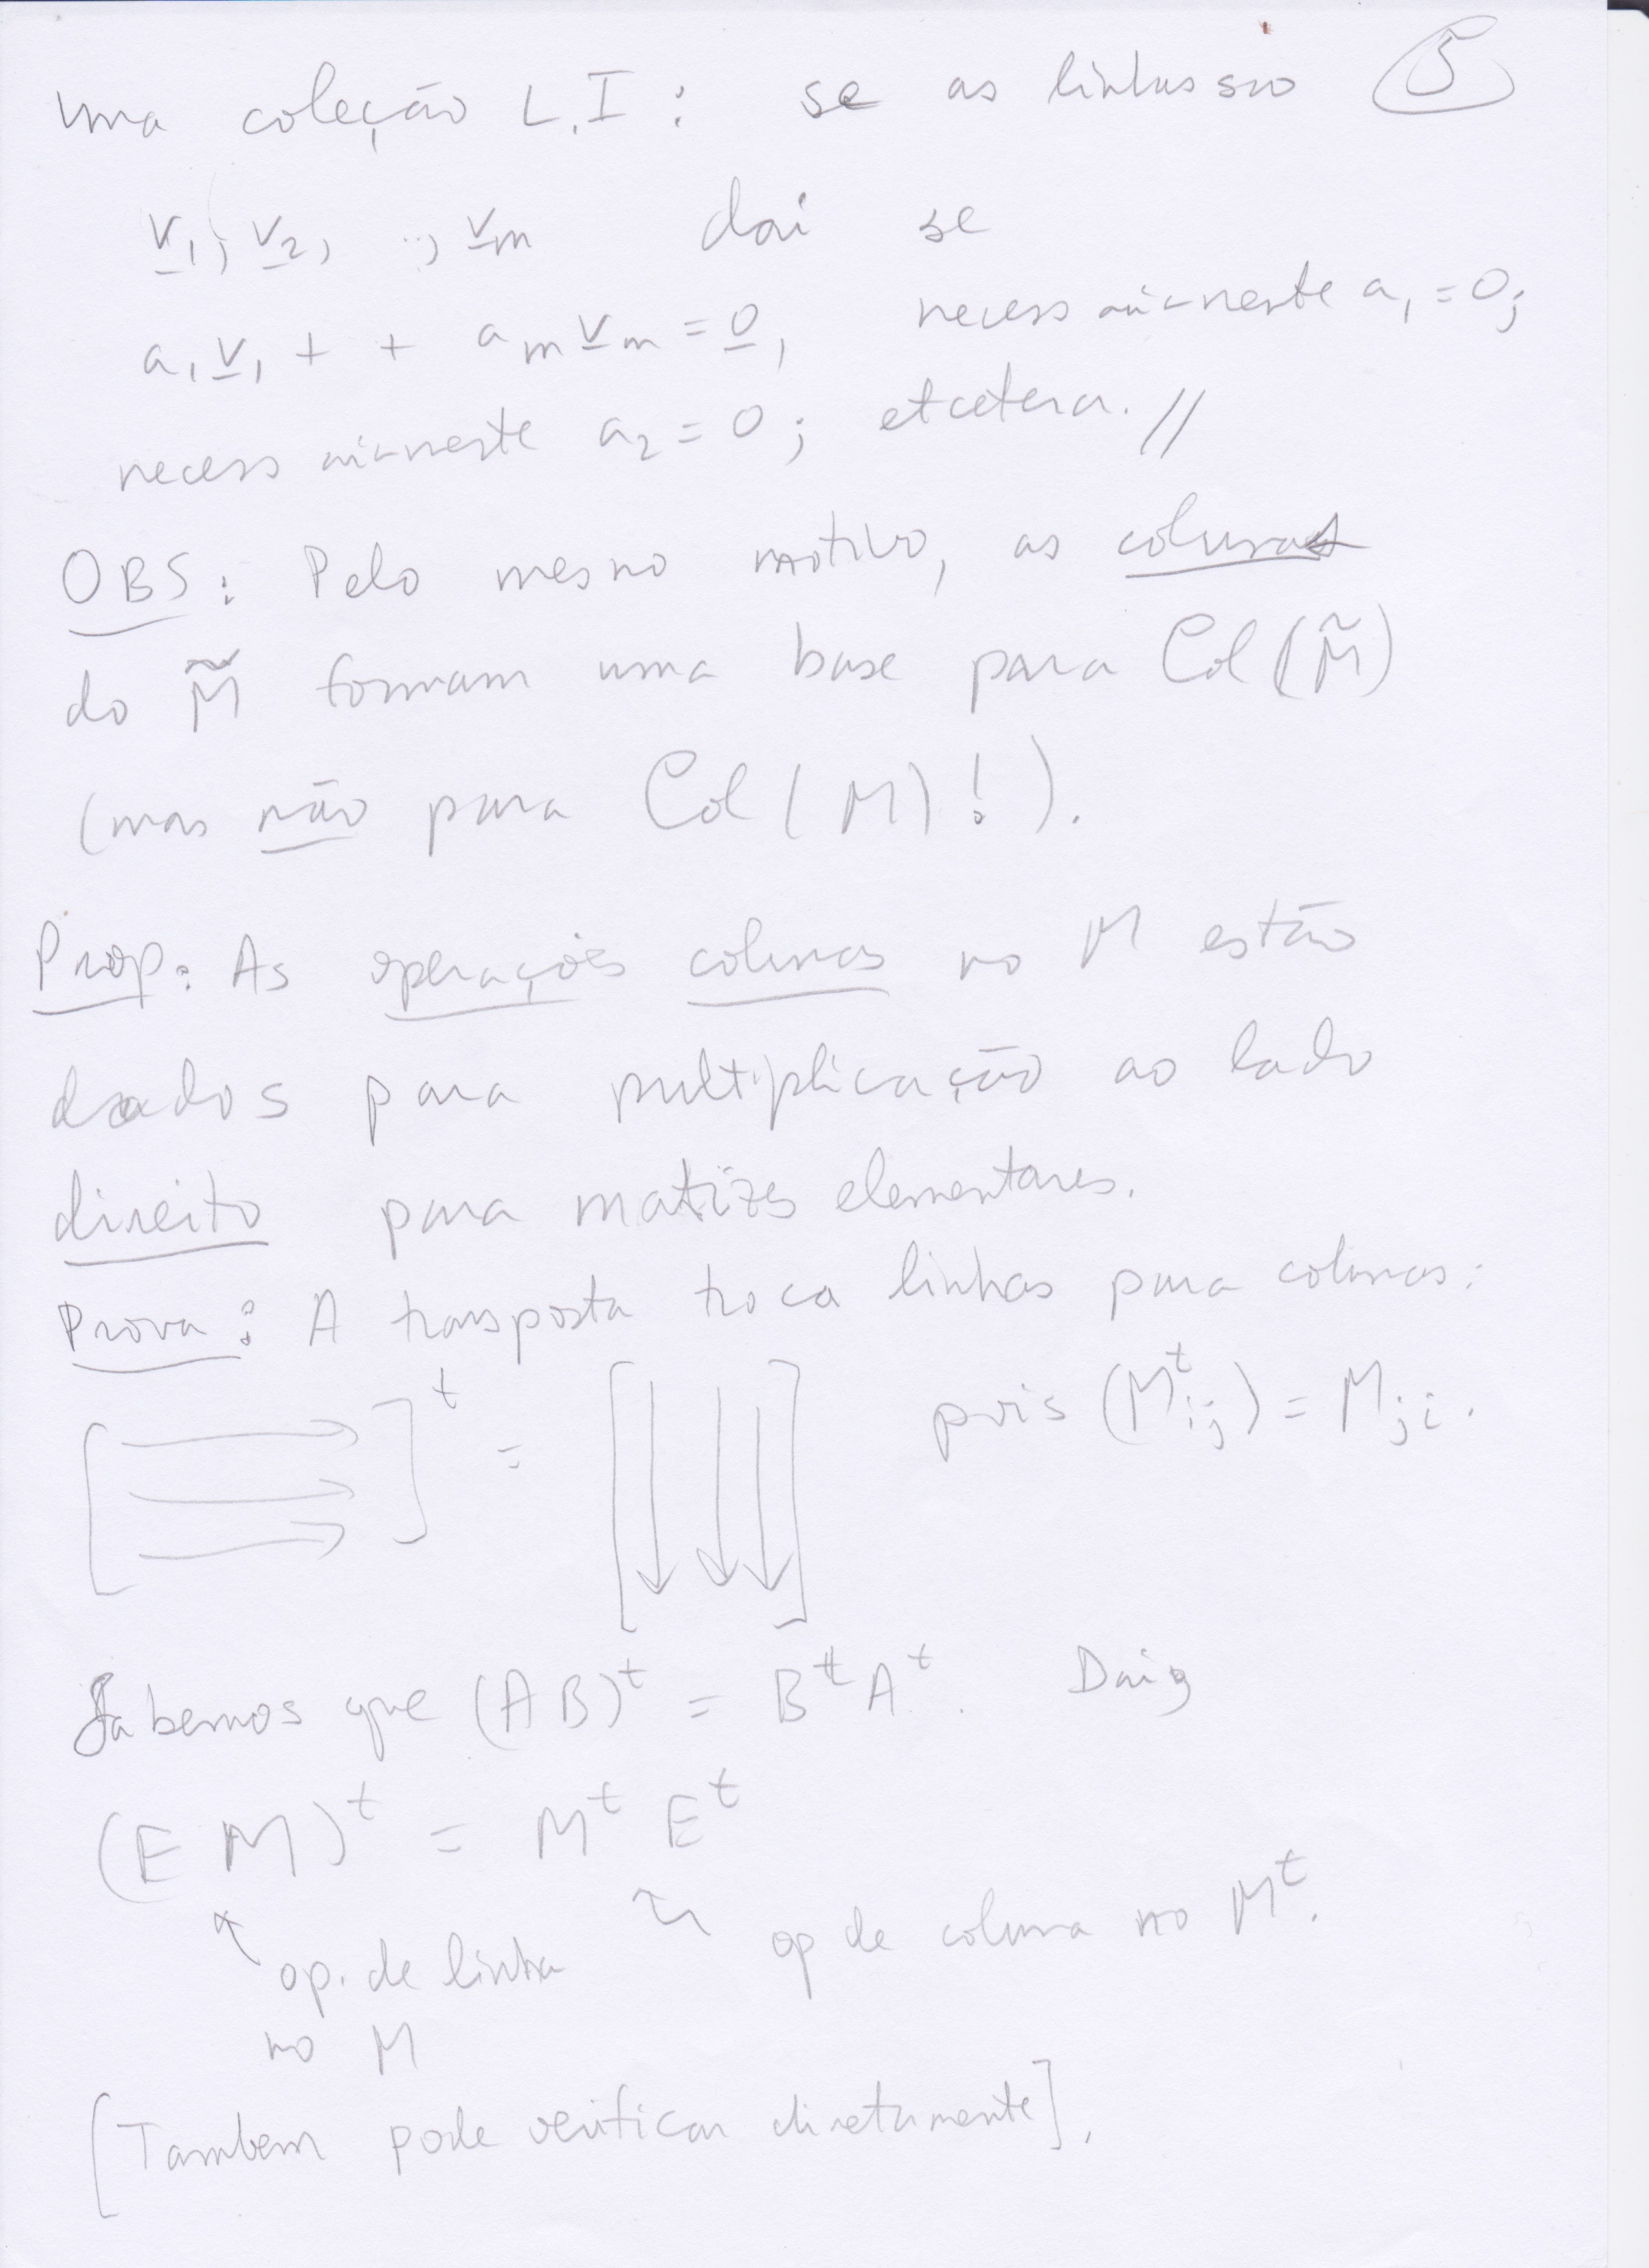 uma coleção L.I: se as linhas são 5
v1, v2, .., vm daí se
a1v1 + + amvm = 0, necessariamente a1 = 0;
necessariamente a2 = 0; etcetera. //
OBS: Pelo mesmo motivo, as colunas
do M̃ formam uma base para Col(M̃)
(mas não para Col(M)!).
Prop: As operações colunas no M estão
dados para multiplicação ao lado
direito para matizes elementares.
Prova: A transposta troca linhas para colunas:
[ ]ᵗ = [ ] pois (Mᵗij) = Mji.
Sabemos que (AB)ᵗ = BᵗAᵗ. Daí,
(E M)ᵗ = Mᵗ Eᵗ
op. de linha op de coluna no Mᵗ.
no M
[Tambem pode verificar diretamente].